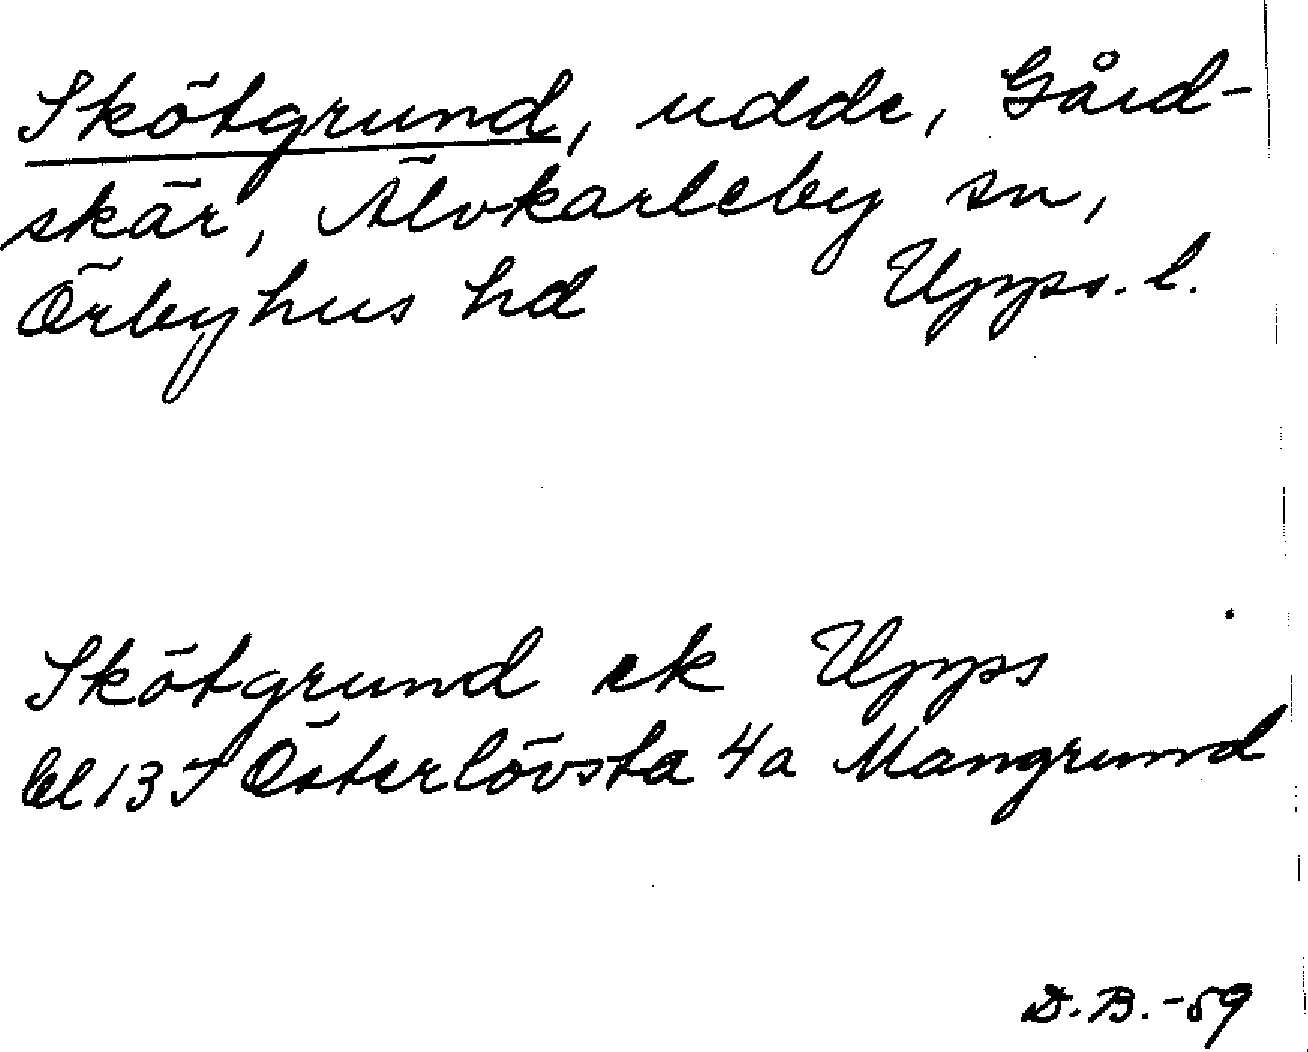 Skötgrund, udde, Gård-
skär, Älvkarleby sn,
Örbyhus hd Upps. l.
Skötgrund ek Upps
bl 13 I Österlövsta 4a Mangrund
D.B. -59